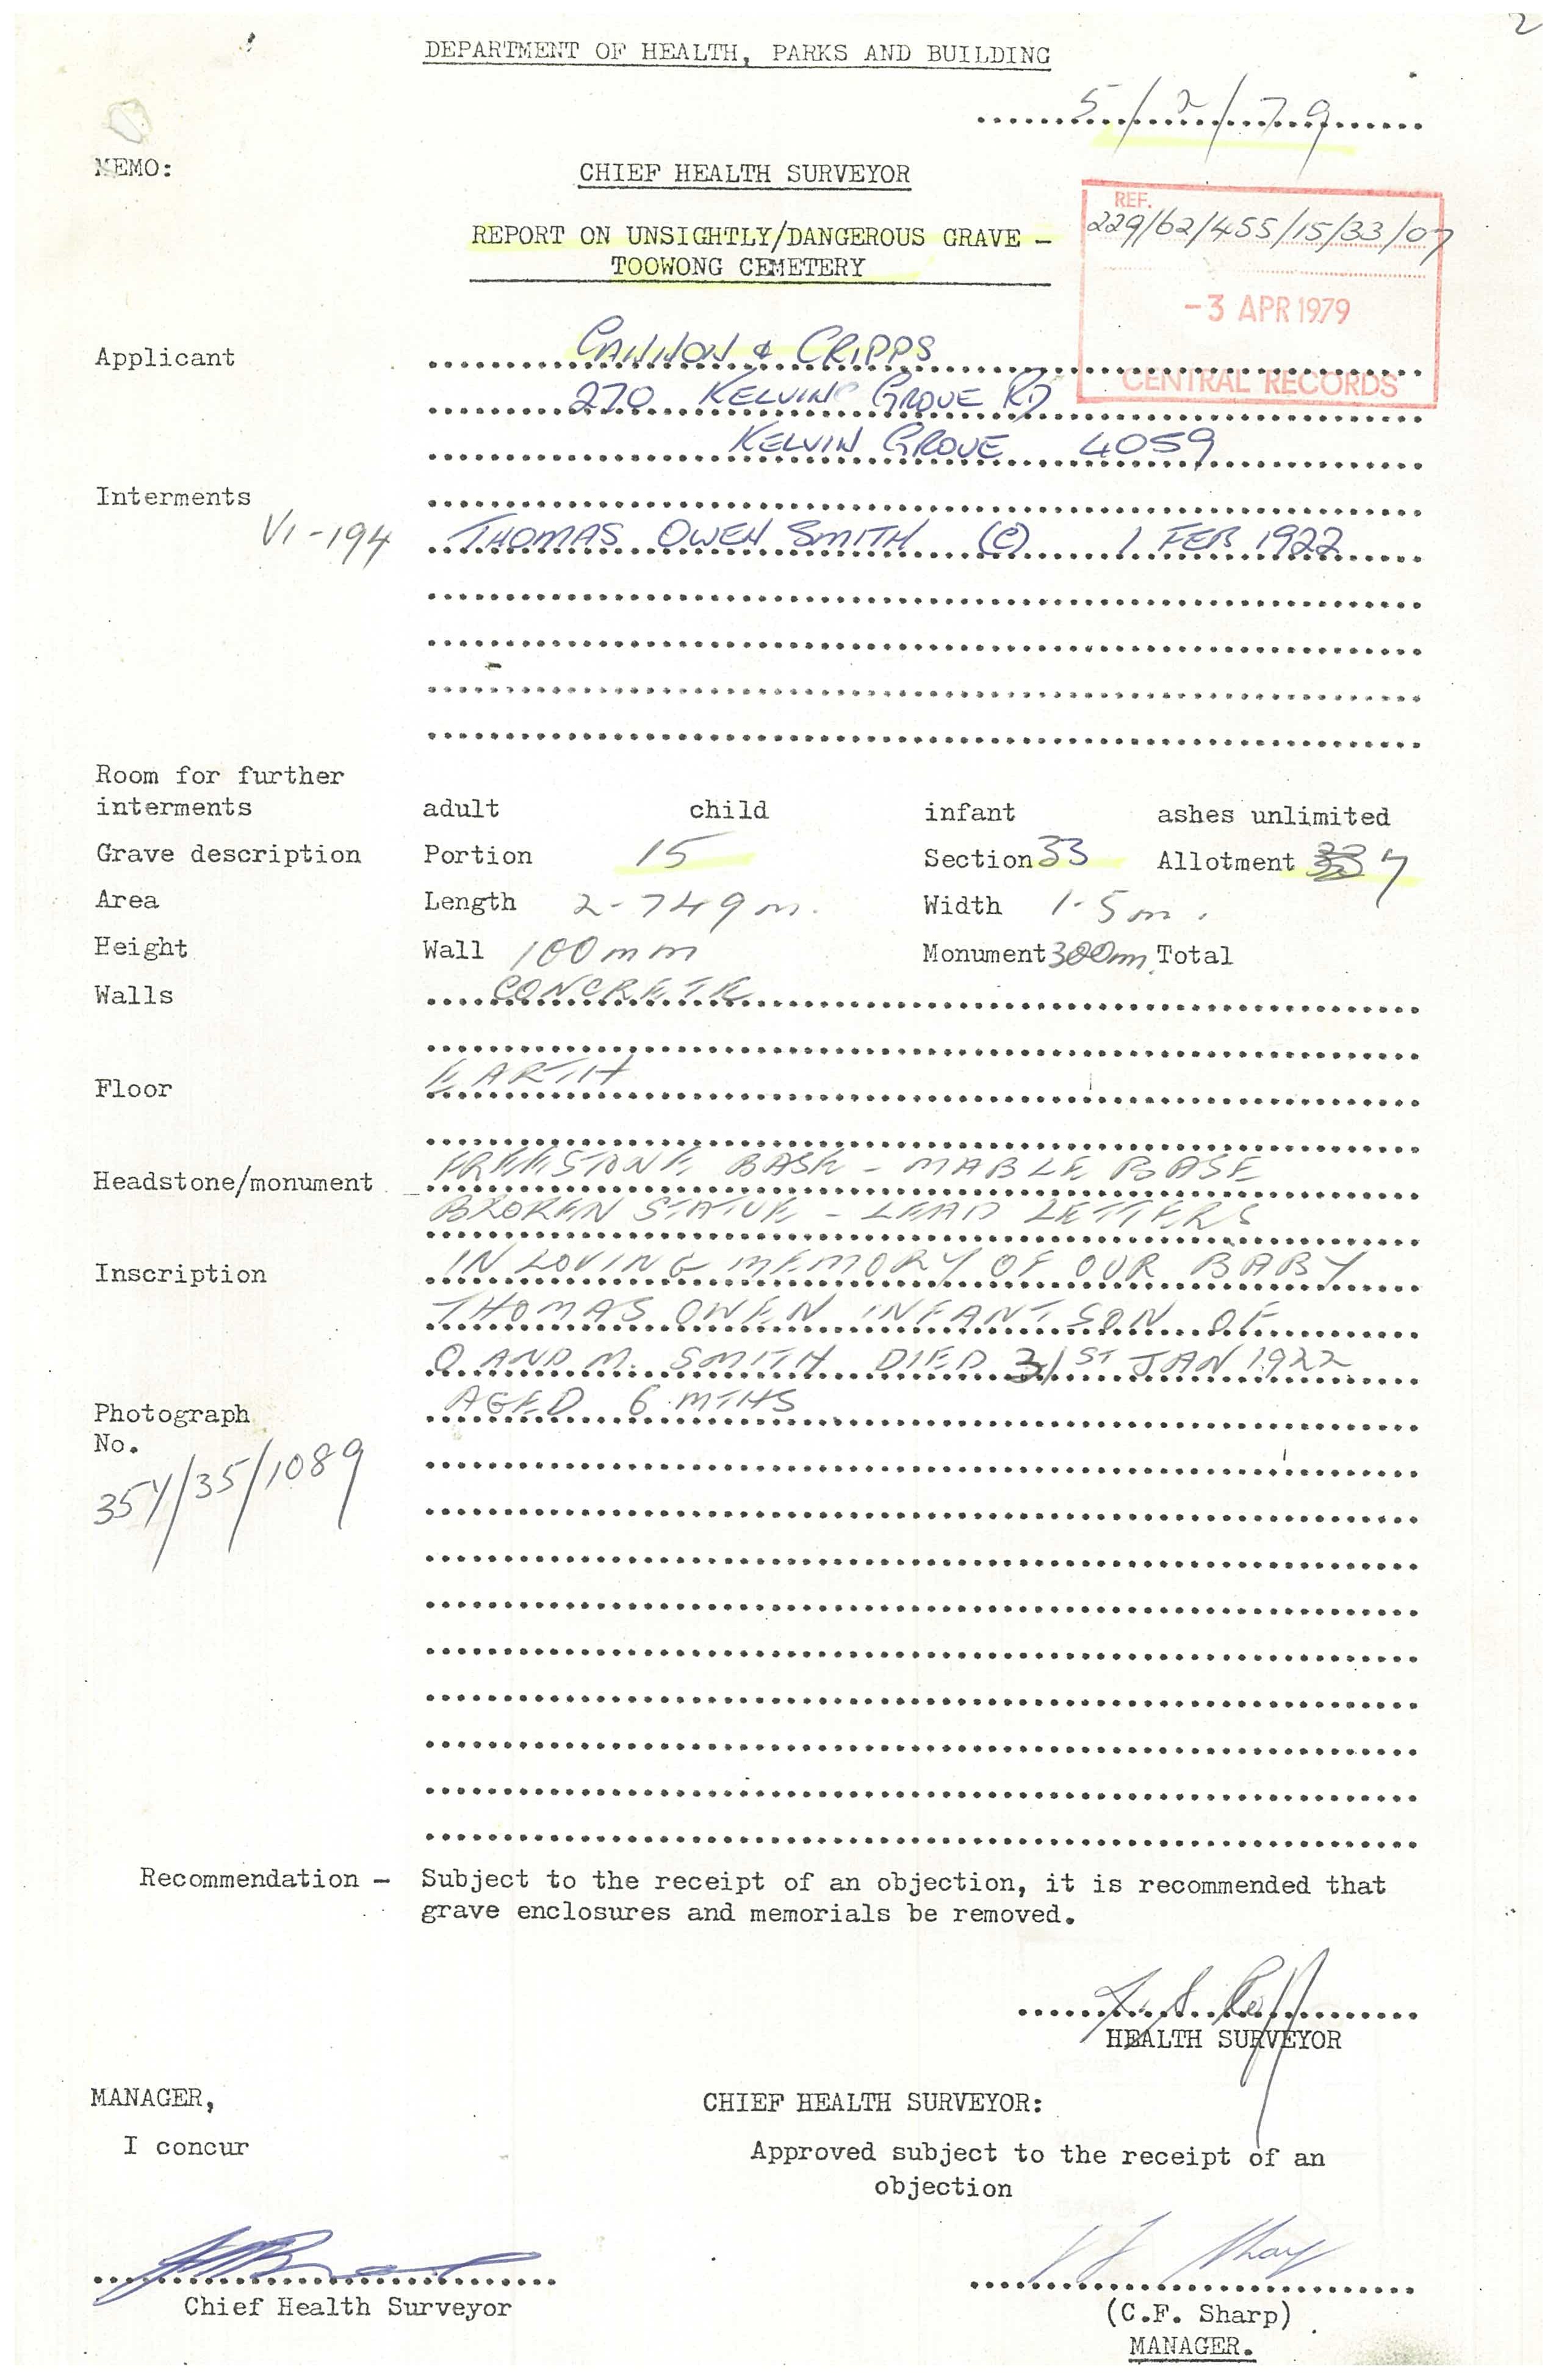 2
DEPARTMENT OF HEALTH, PARKS AND BUILDING
5/2/79
MEMO:
CHIEF HEALTH SURVEYOR
REF.
229/62/455/15/33/07
REPORT ON UNSIGHTLY/DANGEROUS GRAVE -
TOOWONG CEMETERY
-3 APR 1979
CENTRAL RECORDS
Applicant CANNON & CRIPPS
270 KELVIN GROVE RD
KELVIN GROVE 4059
Interments
V1-194 THOMAS OWEN SMITH (C) 1 FEB 1922
Room for further
interments adult child infant ashes unlimited
Grave description Portion 15 Section 33 Allotment 7
Area Length 2-749m. Width 1-5m.
Height Wall 100mm Monument 300mm Total
Walls CONCRETE
Floor EARTH
Headstone/monument FREESTONE BASE - MABLE BASE
BROKEN STATUE - LEAD LETTERS
Inscription IN LOVING MEMORY OF OUR BABY
THOMAS OWEN INFANT SON OF
O AND M. SMITH DIED 31ST JAN 1922
AGED 6 MTHS
Photograph
No.
354/35/1089
Recommendation - Subject to the receipt of an objection, it is recommended that
grave enclosures and memorials be removed.
HEALTH SURVEYOR
MANAGER, CHIEF HEALTH SURVEYOR:
I concur Approved subject to the receipt of an
objection
Chief Health Surveyor
(C.F. Sharp)
MANAGER.